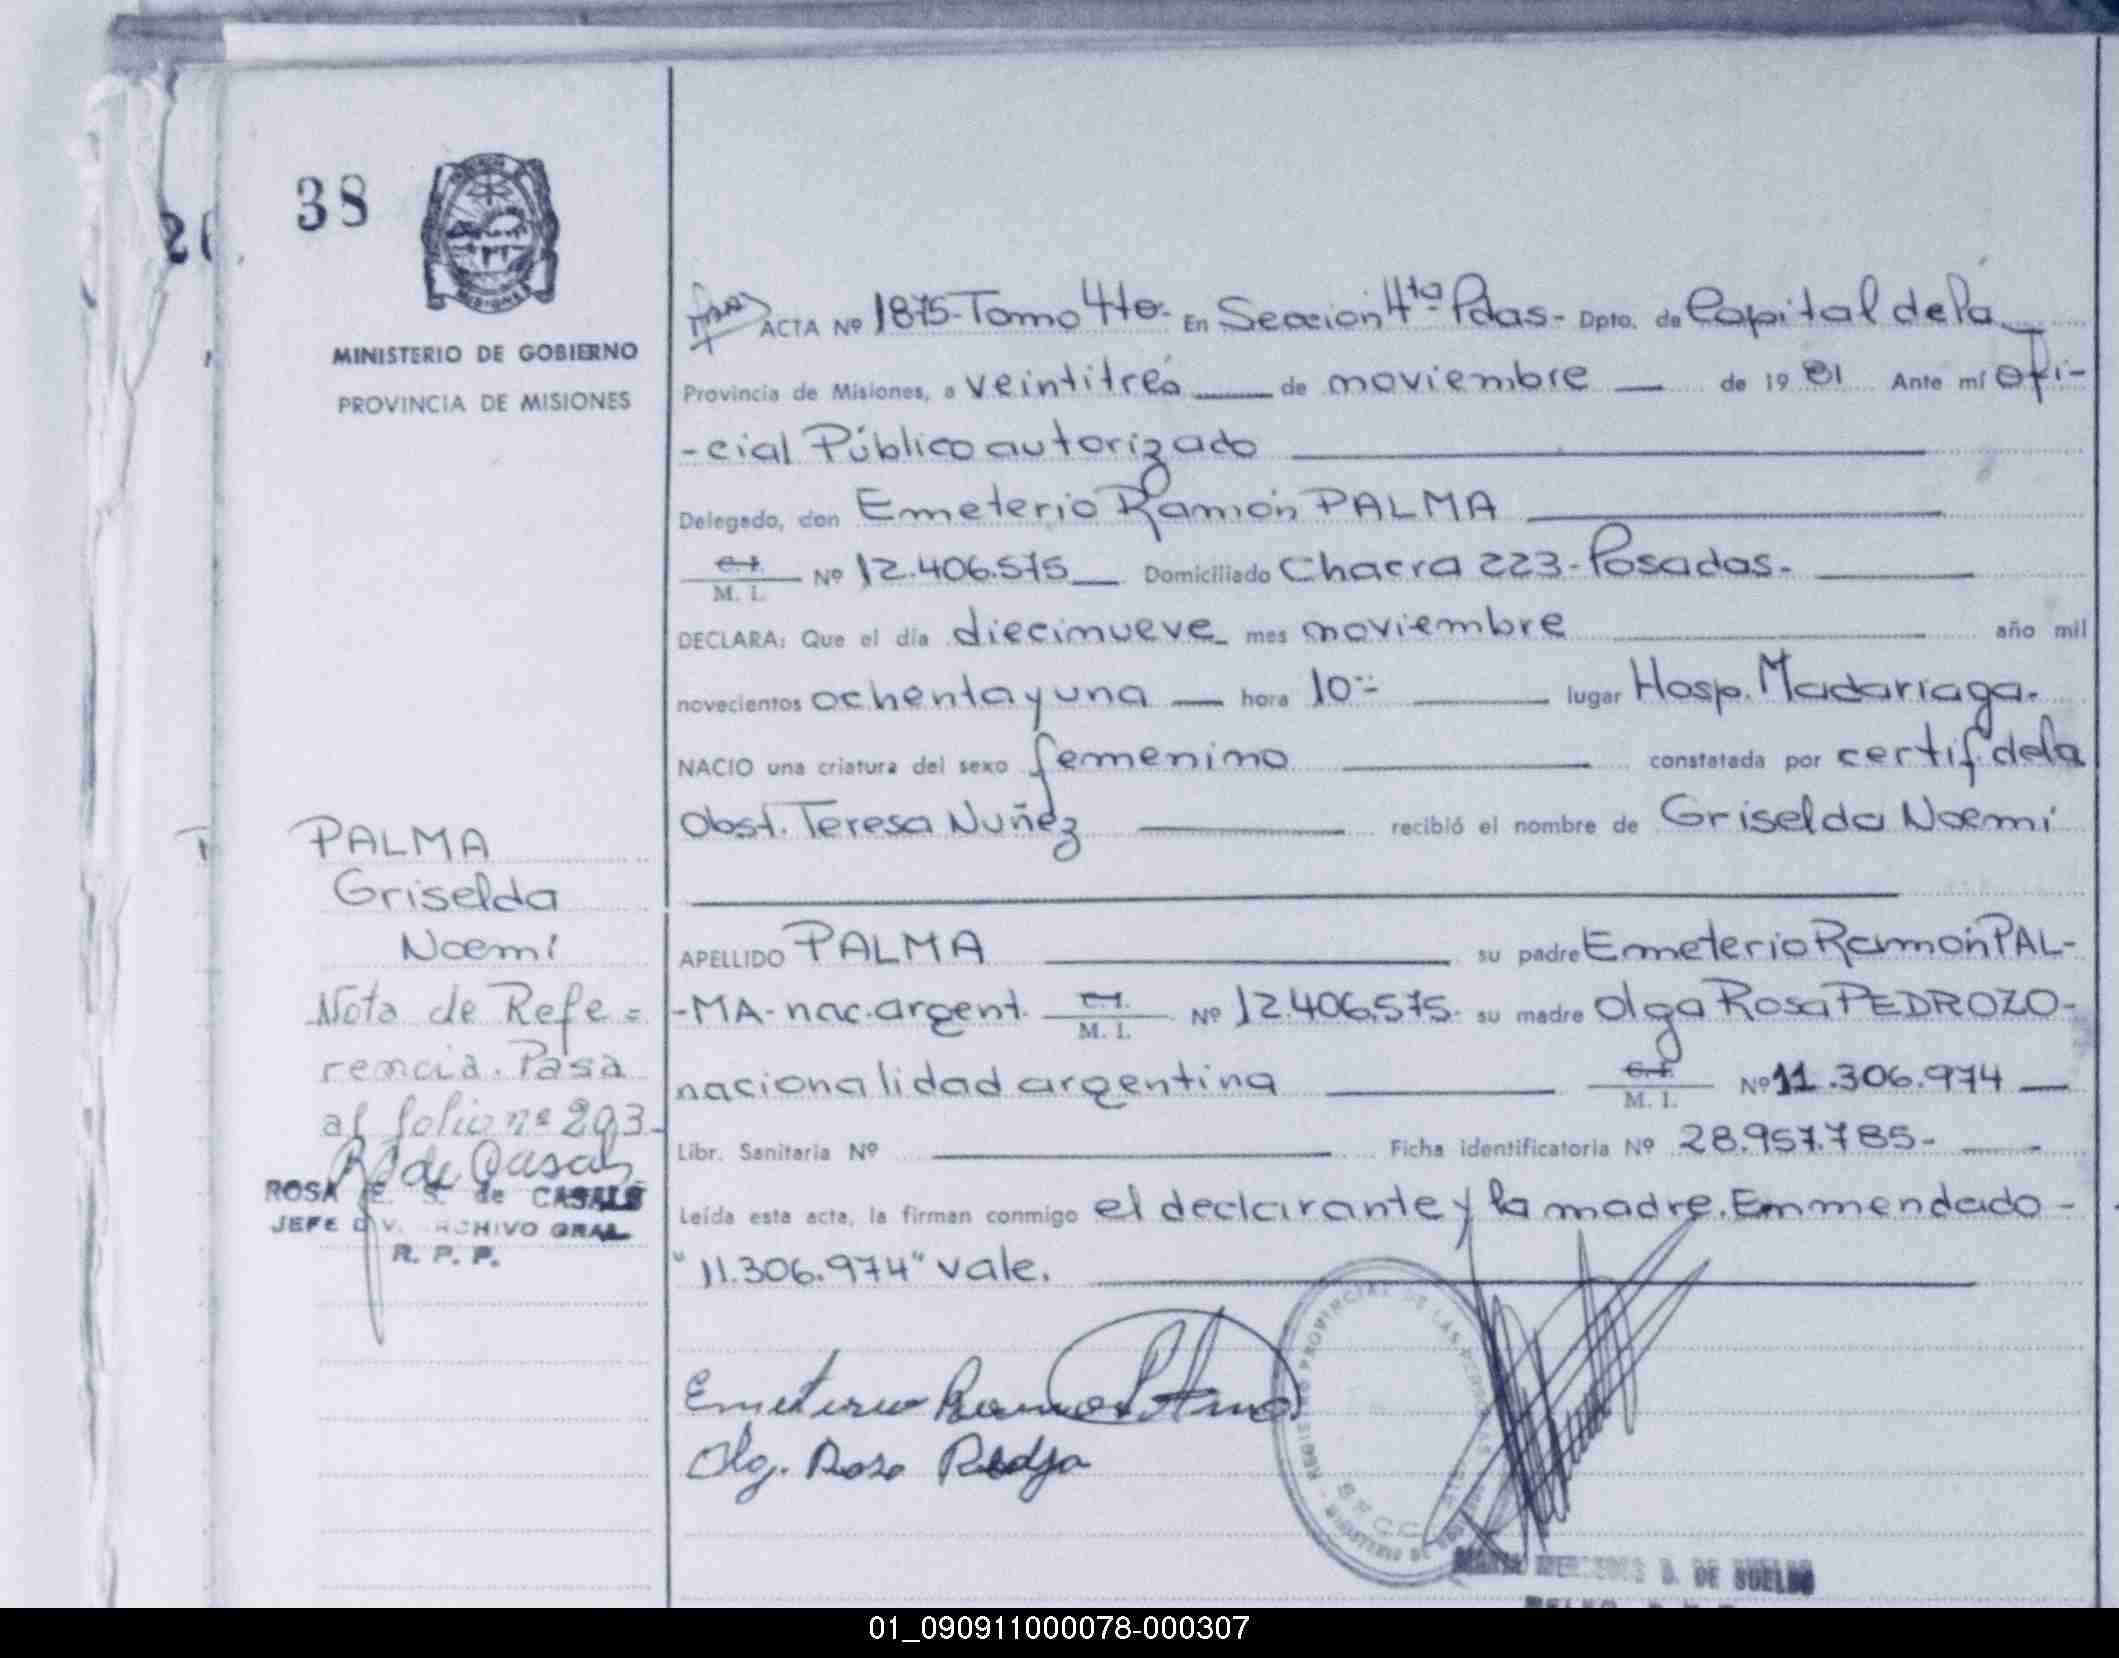 38
MINISTERIO DE GOBIERNO
PROVINCIA DE MISIONES
ACTA Nº 1875-Tomo 4to- En Sección 4ta Pdas- Dpto. de Capital de la
Provincia de Misiones, a veintitrés de noviembre de 19 81 Ante mí Ofi-
-cial Público autorizado
Delegado, don Emeterio Ramón PALMA
C. I. M. I. Nº 12.406.575 Domiciliado Chacra 223-Posadas-
DECLARA: Que el día diecinueve mes noviembre año mil
novecientos ochenta y una hora 10-- lugar Hosp. Madariaga.
NACIO una criatura del sexo femenino constatada por certif. de la
Obst. Teresa Nuñez recibió el nombre de Griselda Noemi
APELLIDO PALMA su padre Emeterio Ramón PAL-
-MA- nac. argent. M. I. Nº 12.406.575- su madre Olga Rosa PEDROZO-
nacionalidad argentina C. I. M. I. Nº 11.306.974
Libr. Sanitaria Nº Ficha identificatoria Nº 28.957.785-
Leída esta acta, la firman conmigo el declarante y la madre. Emmendado-
"11.306.974" vale.
PALMA
Griselda
Noemi
Nota de Refe=
rencia. Pasa
al folio nº 293-
ROSA E. S. de CASALS
JEFE DIV. ARCHIVO GRAL
R. P. P.
Emeterio Ramon Palma
Olg. Rosa
REGISTRO PROVINCIAL DE LAS PERSONAS
MINISTERIO DE
DE SUELDO
01_090911000078-000307